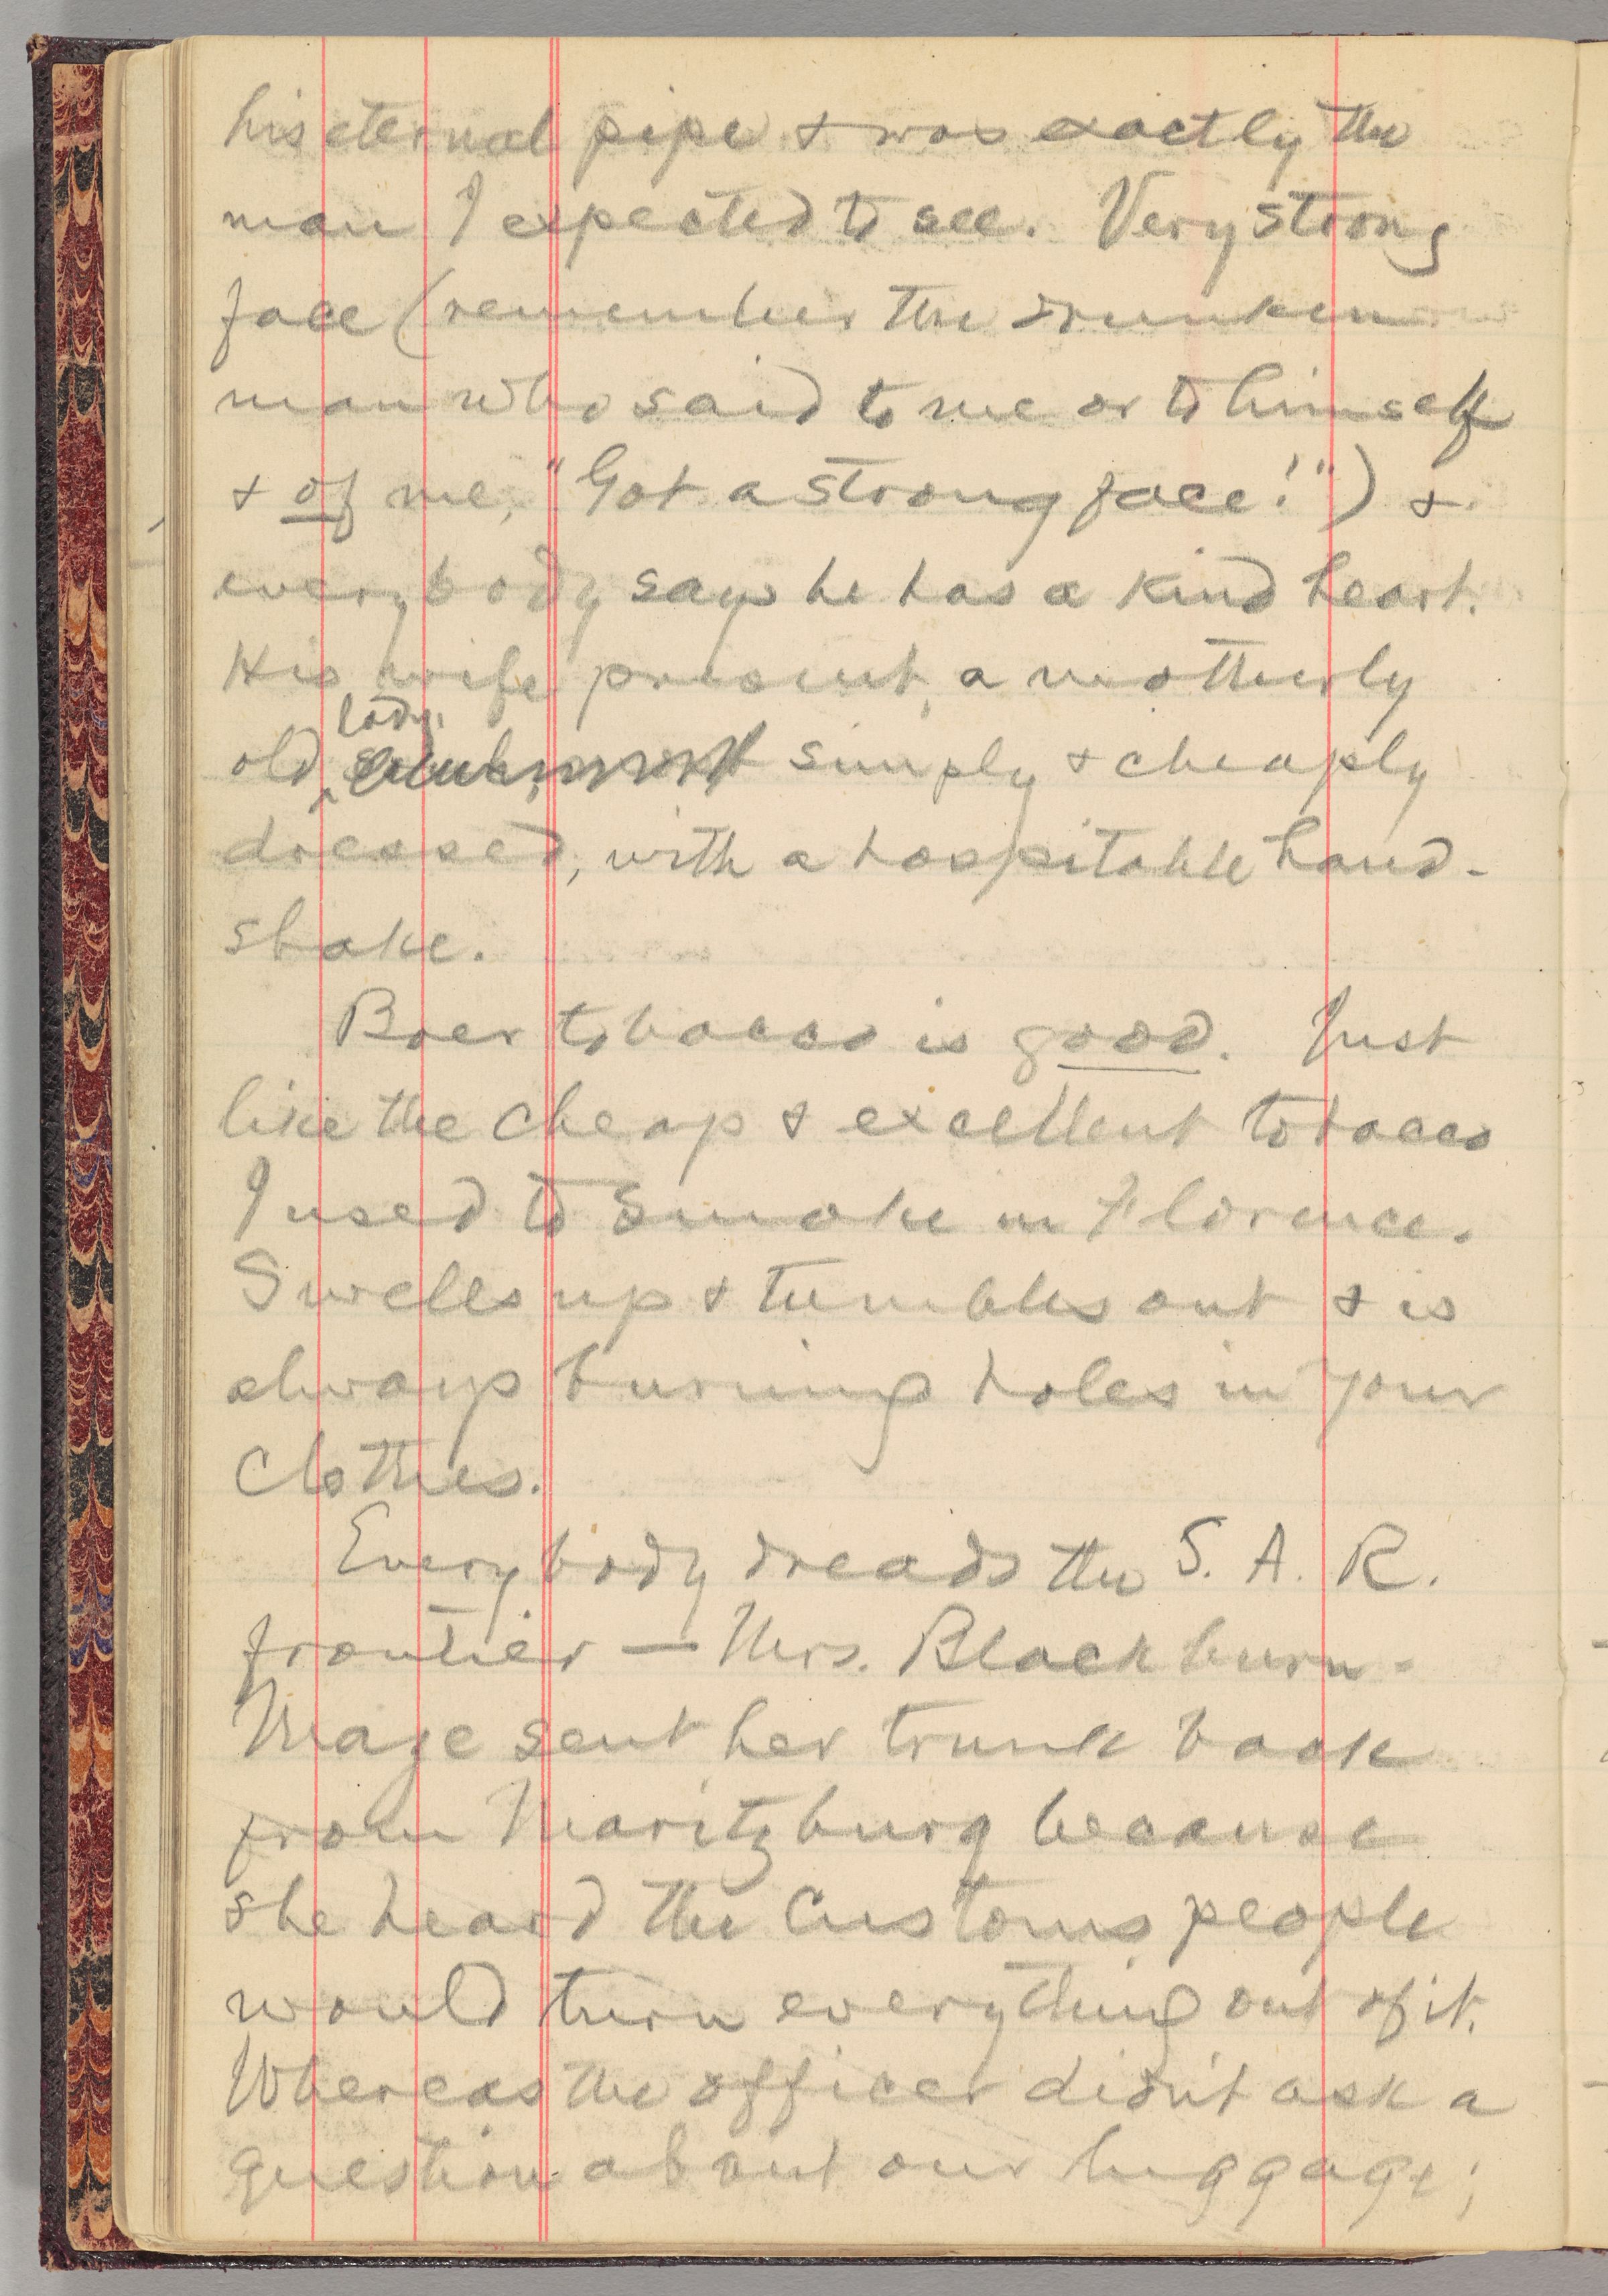 his eternal pipe & was exactly the
man I expected to see. Very strong
face (remember the drunken
man who said to me or to himself
& of me, "Got a strong face!") &
everybody says he has a kind heart.
His wife present, a motherly
lady,
old simply & cheaply
dressed, with a hospitable hand-
shake.
Boer tobacco is good. Just
like the cheap & excellent tobacco
I used to smoke in Florence.
Swells up & tumbles out & is
always burning holes in your
clothes.
Everybody dreads the S. A. R.
frontier — Mrs. Blackburn-
Maze sent her trunk back
from Maritzburg because
she heard the Customs people
would turn everything out of it.
Whereas the officer didn't ask a
question about our luggage;